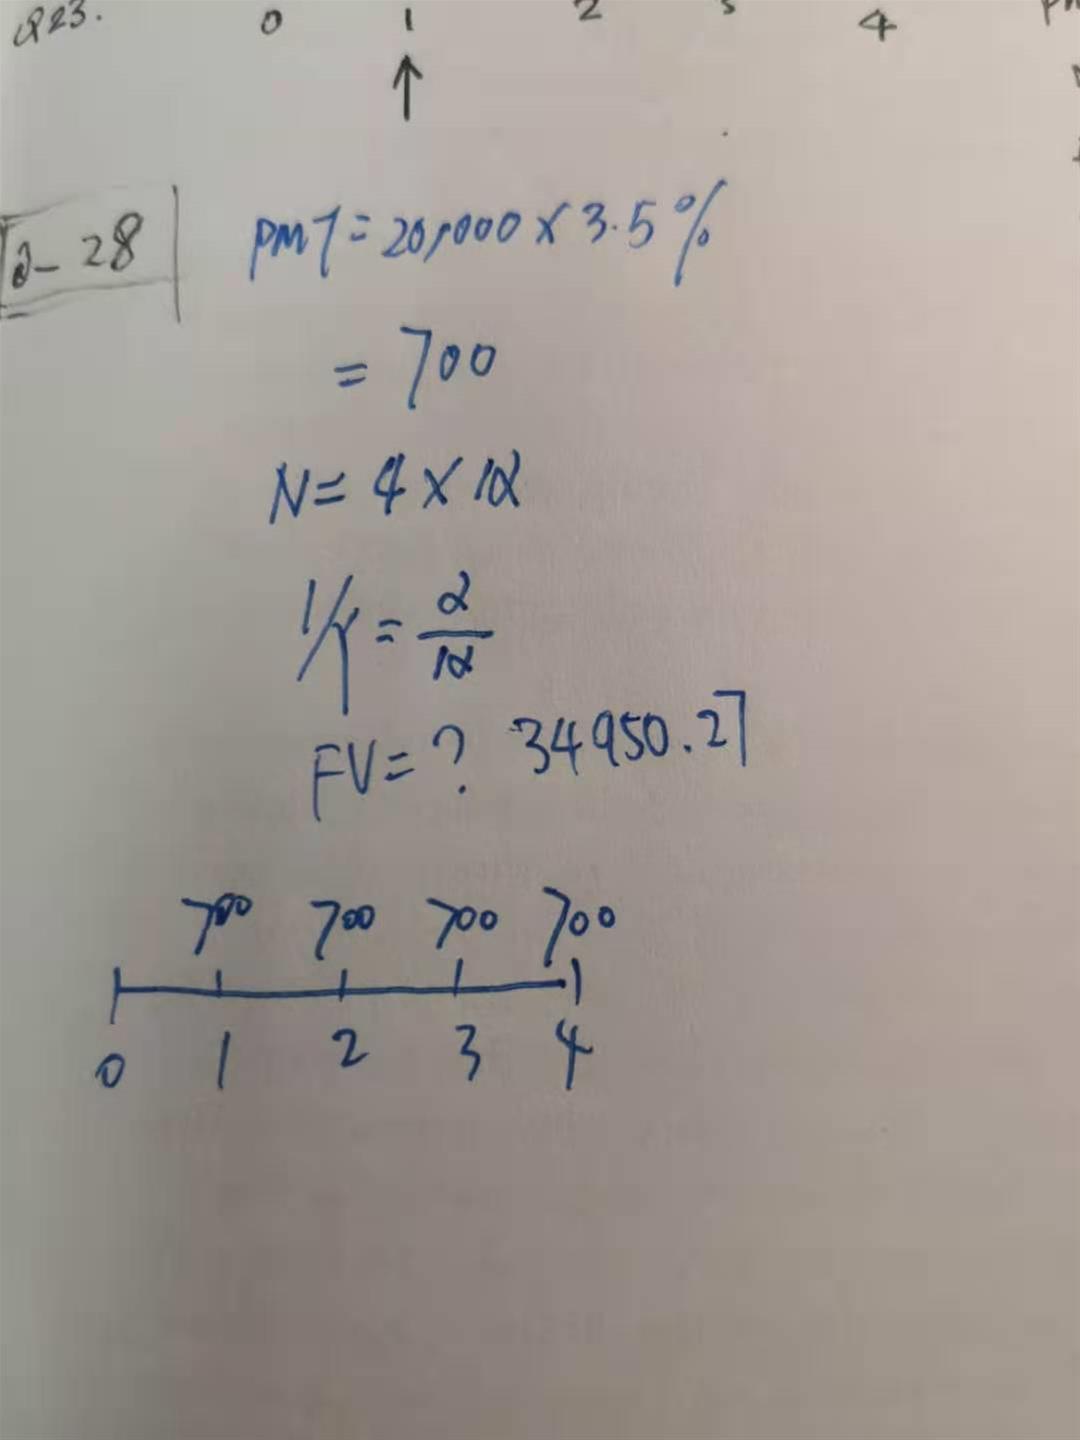 Q23. 0 1 2 3 4
Q-28
PMT = 20,000 × 3.5%
= 700
N = 4 × 12
I/Y = 2/12
FV = ? 34950.27
700 700 700 700
0 1 2 3 4